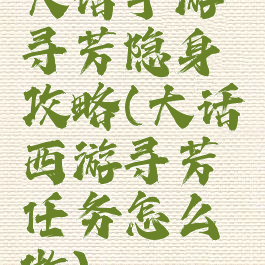 大话手游
寻芳隐身
攻略(大话
西游寻芳
任务怎么